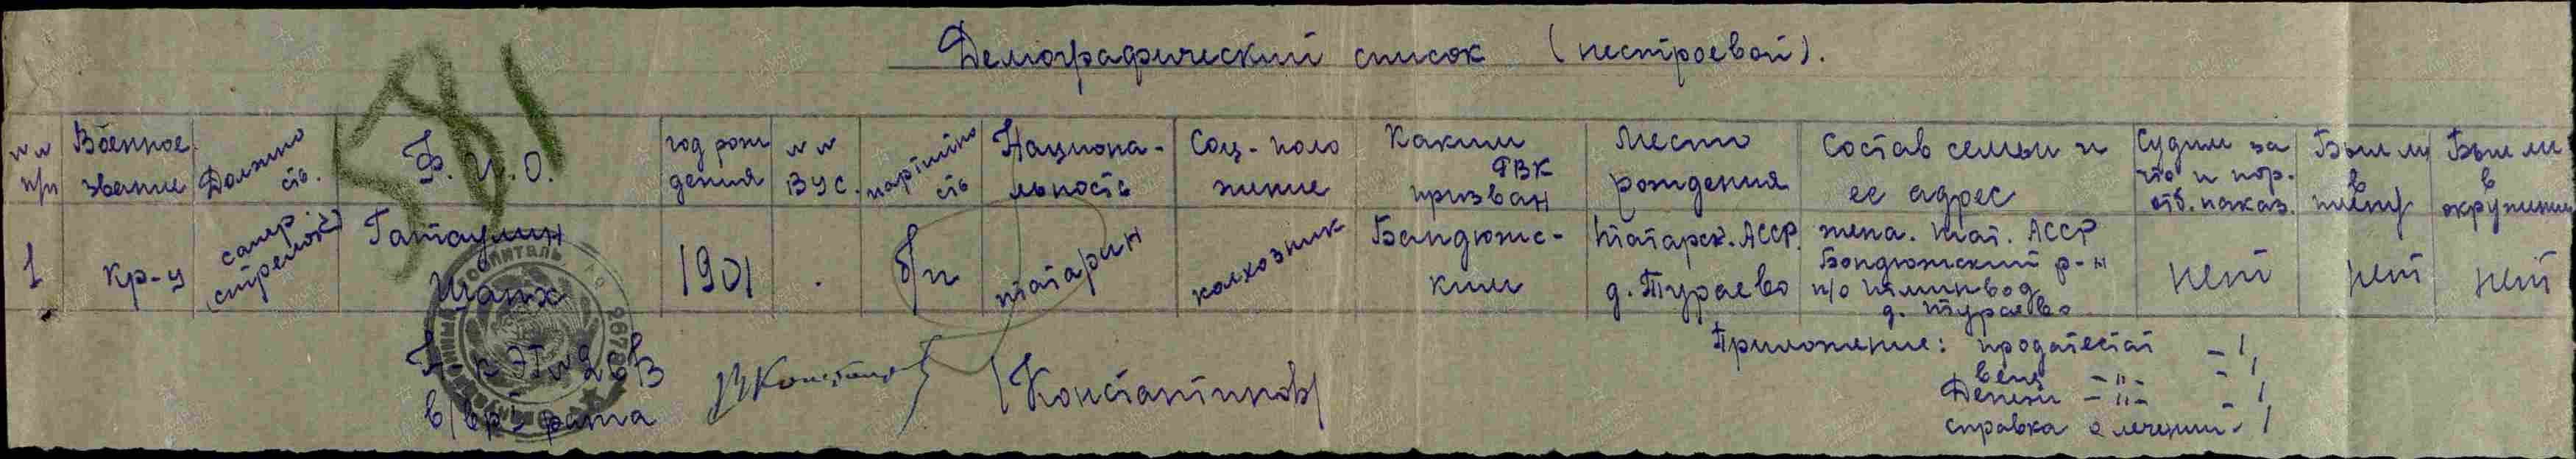 Демографический список (нестроевой).
581
№№ п/п
Военное звание
Должно сть.
Ф. И. О.
год рож дения
№№ ВУС.
партийно сть
Национа- льность
Соц-поло жение
Каким РВК призван
Место рождения
Состав семьи и ее адрес
Судим за что и пор. отб. наказ.
Был ли в плену
Был ли в окружении
1
Кр-ц
сапер (стрелок)
Гатаулин Шайх
1901
б/п
татарин
колхозник
Бондюжс- ким
Татарск. АССР. д. Тураево
жена. Тат. АССР Бондюжский р-н п/о д. Тураево
нет
нет
нет
Н-к
в/вр I ранга
/Константинов/
Приложение: продатестат – 1,
вещ –"– – 1,
Денеж –"– 1
справка о лечении – 1
госпиталь